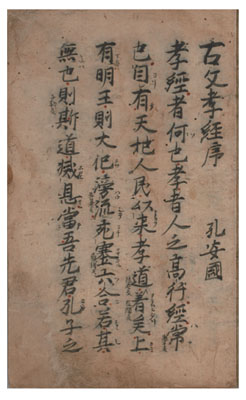 古文孝経序　孔安國
孝経者何也孝者人之高行経常
也自有天地人民以来孝道著矣上
有明王則大化滂流充塞六合若其
無也則斯道滅息當吾先君孔子之